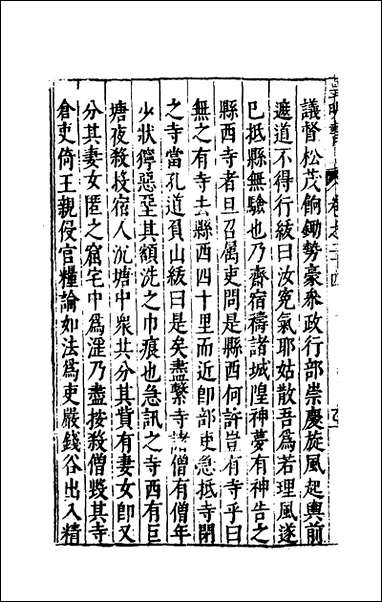 議督松茂餉鋤勢豪叅政行部崇慶旋風起輿前
遮道不得行紱曰汝寃氣耶姑散吾爲若理風遂
已抵縣無驗也乃齋宿禱諸城隍神夢有神告之
縣西寺者旦召屬吏問是縣西何許豈有寺乎曰
無之有寺去縣西四十里而近卽部吏急抵寺閉
之寺當孔道負山紱曰是矣盡繫寺諸僧有僧年
少狀獰惡堊其額洗之巾痕也急訊之寺西有巨
塘夜殺投宿人沉塘中衆共分其貲有妻女卽又
分其妻女匿之窟宅中爲淫乃盡按殺僧毁其寺
倉吏倚王親侵官糧論如法爲吏嚴錢谷出入精